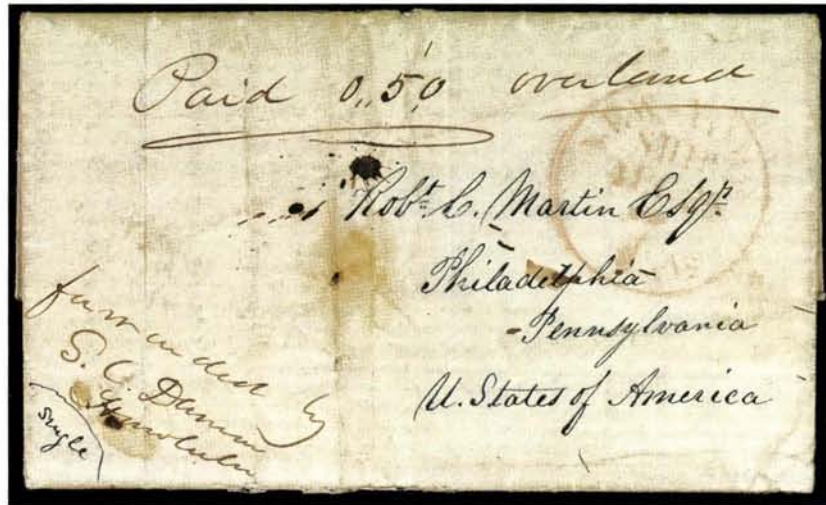 Paid 0.50 overland
Robt. C. Martin Esqr.
Philadelphia
Pennsylvania
U. States of America
forwarded by
S. C. Damon
Honolulu
single